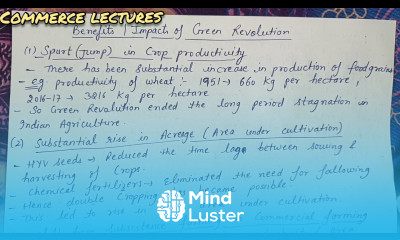 COMMERCE LECTURES
Benefits | Impact of Green Revolution
(1) Spurt (Jump) in Crop productivity
- There has been substantial increase in production of foodgrains
- eg productivity of wheat :- 1951 → 660 Kg per hectare,
2016-17 → 3216 Kg per hectare.
- So Green Revolution ended the long period stagnation in
Indian Agriculture.
(2) Substantial rise in Acreage (Area under cultivation)
- HYV seeds → Reduced the time lags between sowing &
harvesting of Crops.
Chemical fertilizers → Eliminated the need for following
- Hence double Cropping become possible
- This led to rise in under cultivation
Commercial farming
Mind
Luster